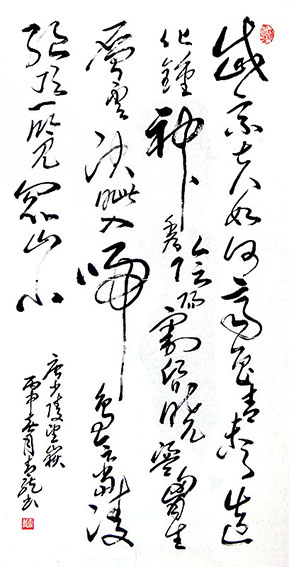 岱宗夫如何齊魯青未了造
化鍾神秀陰陽割昏曉盪胸生
層雲決眦入歸鳥會當凌
絕頂一覽眾山小
唐少陵望嶽
丙申春月龍书